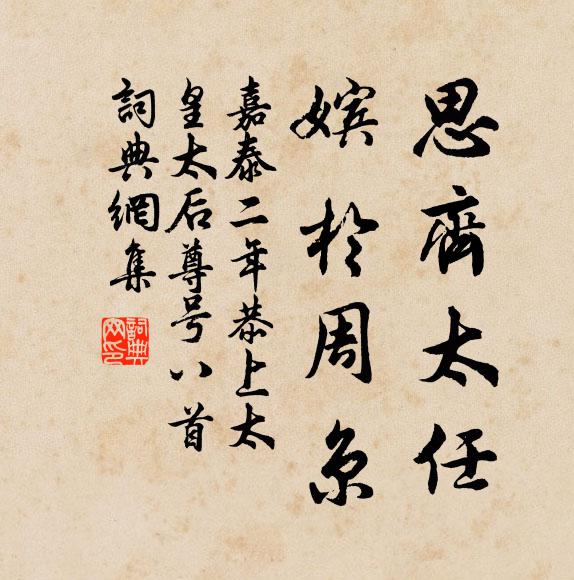 思齊太任
嬪於周京
嘉泰二年恭上太
皇太后尊号八首
詞典網集
詞典網印